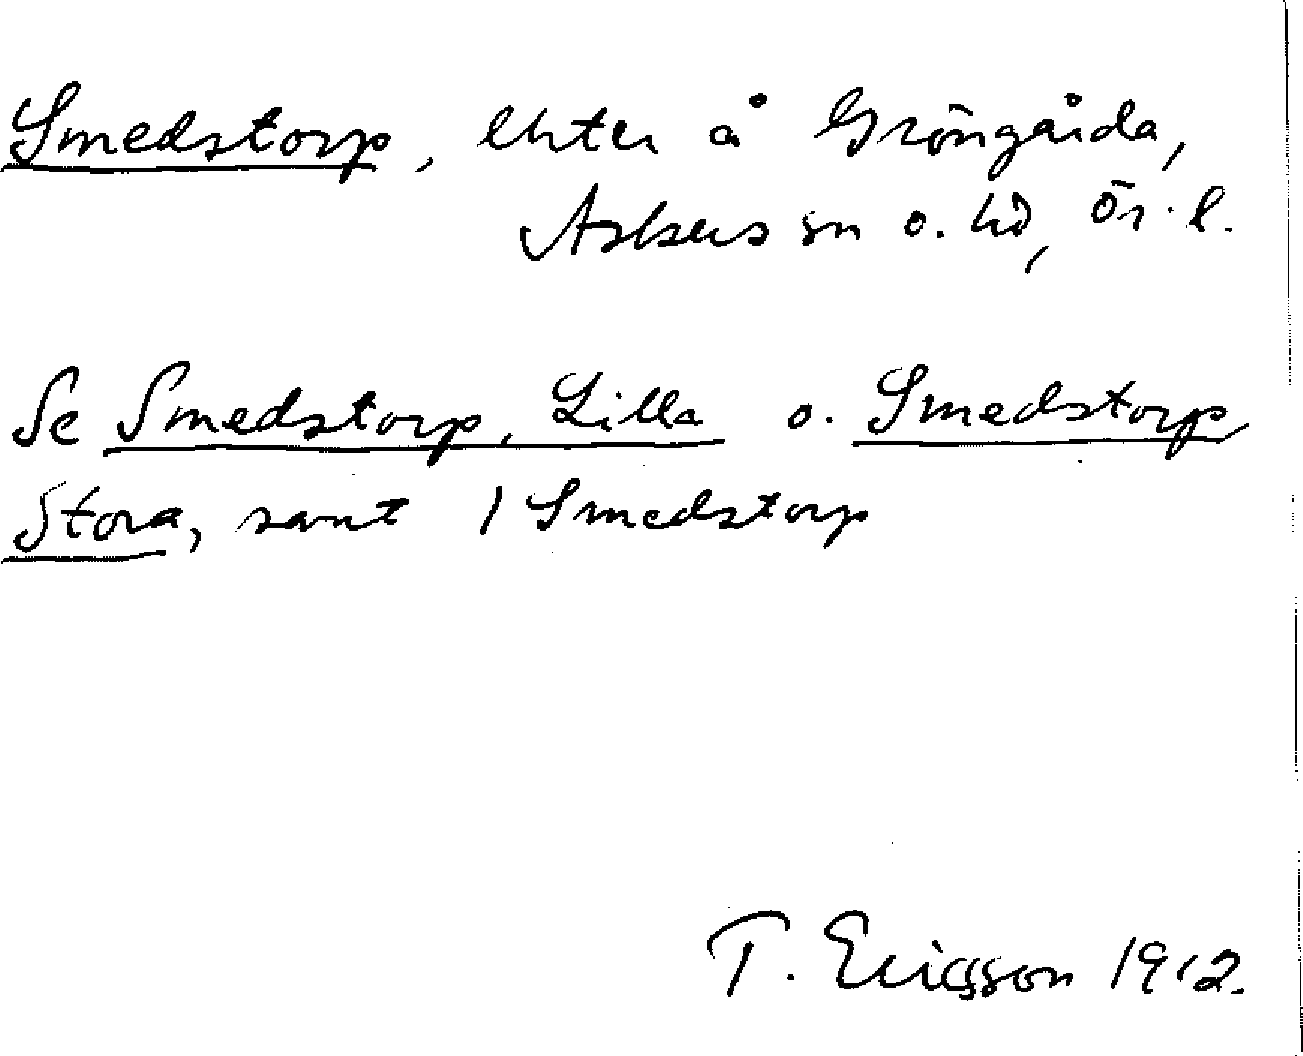 Smedstorp, lhter å Gröngårda,
Askers sn o. hd, Ör. l.
Se Smedstorp, Lilla o. Smedstorp,
Stora, samt 1 Smedstorp
T. Ericsson 1912.